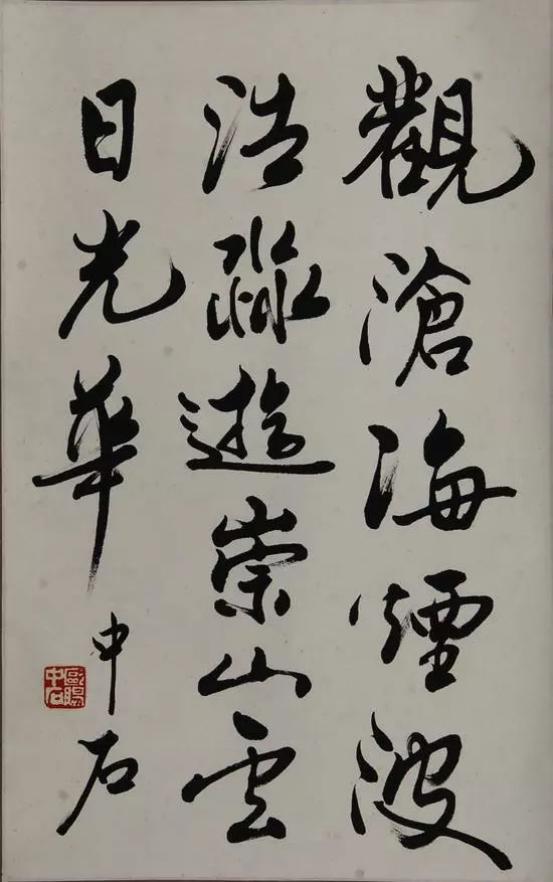 觀滄海煙波
浩淼遊崇山雲
日光華
中石
歐陽中石